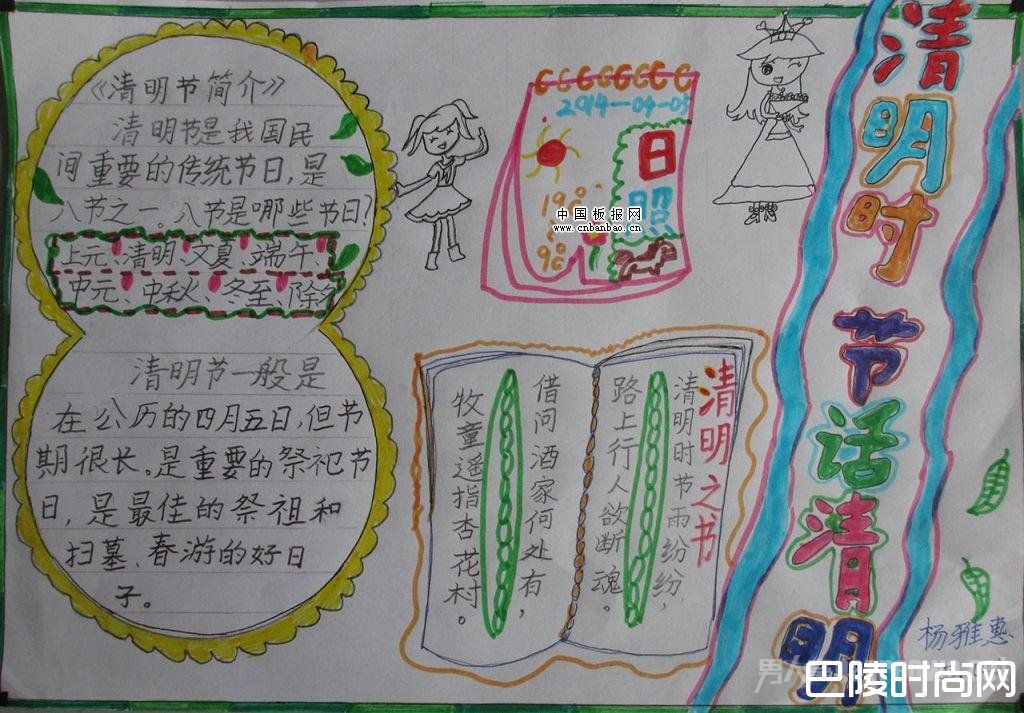 《清明节简介》
清明节是我国民
间重要的传统节日,是
八节之一。八节是哪些节日?
上元、清明、文夏、端午、
中元、中秋、冬至、除夕
清明节一般是
在公历的四月五日,但节
期很长。是重要的祭祀节
日,是最佳的祭祖和
扫墓、春游的好日
子。
2014-04-05
日
照
19°
9°
中国板报网
www.cnbanbao.cn
清明之书
清明时节雨纷纷,
路上行人欲断魂。
借问酒家何处有,
牧童遥指杏花村。
清明时节话清明
杨雅惠
巴陵时尚网